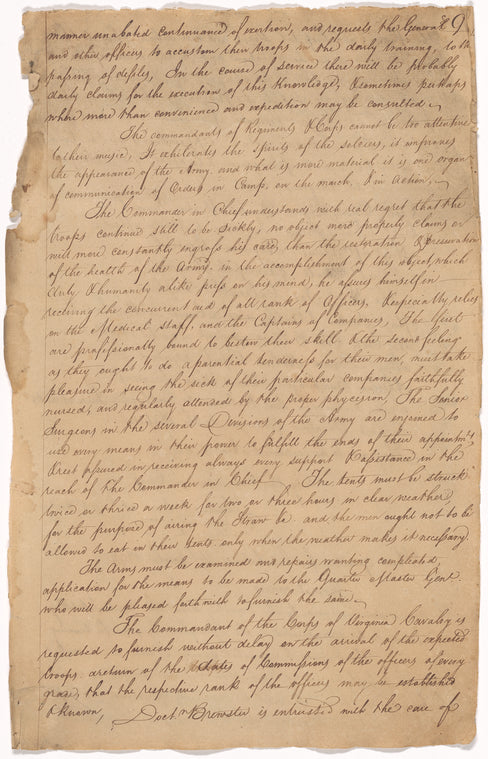 manner unabated continuance of exertion, and requests the General 9
and other officers to accustom their troops in the daily training, to the
passing of defiles, In the course of service there will be probably
daily claims for the execution of this knowledge, & sometimes perhaps
where more than convenience and expedition may be consulted
The commandants of Regiments & Corps cannot be too attentive
to their music, It exhilerates the spirits of the soldiers, it improves
the appearance of the Army, and what is more material it is one organ
of communication of Orders in Camp, on the march, & in action,
The Commander in Chief understands with real regret that the
troops continue still to be sickly, no object more properly claims or
will more constantly engross his care, than the restoration & preservation
of the health of the Army, in the accomplishment of this object, which
duty & humanity alike press on his mind, he assures himself in
receiving the concurrent aid of all rank of Officers, & especially relies
on the Medical staff, and the Captains of Companies, The first
are professionally bound to bestow their skill & the second feeling
as they ought to do a parental tenderness for their men, must take
pleasure in seeing the sick of their particular companies faithfully
nursed, and regularly attended by the proper physicion, The Senior
Surgeons in the several Divisions of the Army are enjoined to
use every means in their power to fulfill the ends of their appointmts,
& rest assured in receiving always every support & assistance in the
reach of the Commander in Chief The tents must be struck
twice or thrice a week for two or three hours in clear weather,
for the purpose of airing the Straw &c. and the men ought not to be
allowed to eat in their tents only when the weather makes it necessary.
The Arms must be examined and repairs wanting complicated,
application for the means to be made to the Quarter Master Genl.
who will be pleased forthwith to furnish the same
The Commandant of the Corps of Virginia Cavalry is
requested to furnish without delay on the arrival of the expected
troops a return of the dates of Commissions of the officers of every
grade, that the respective rank of the officers may be establishd
& known, Doctr Brewster is entrusted with the care of